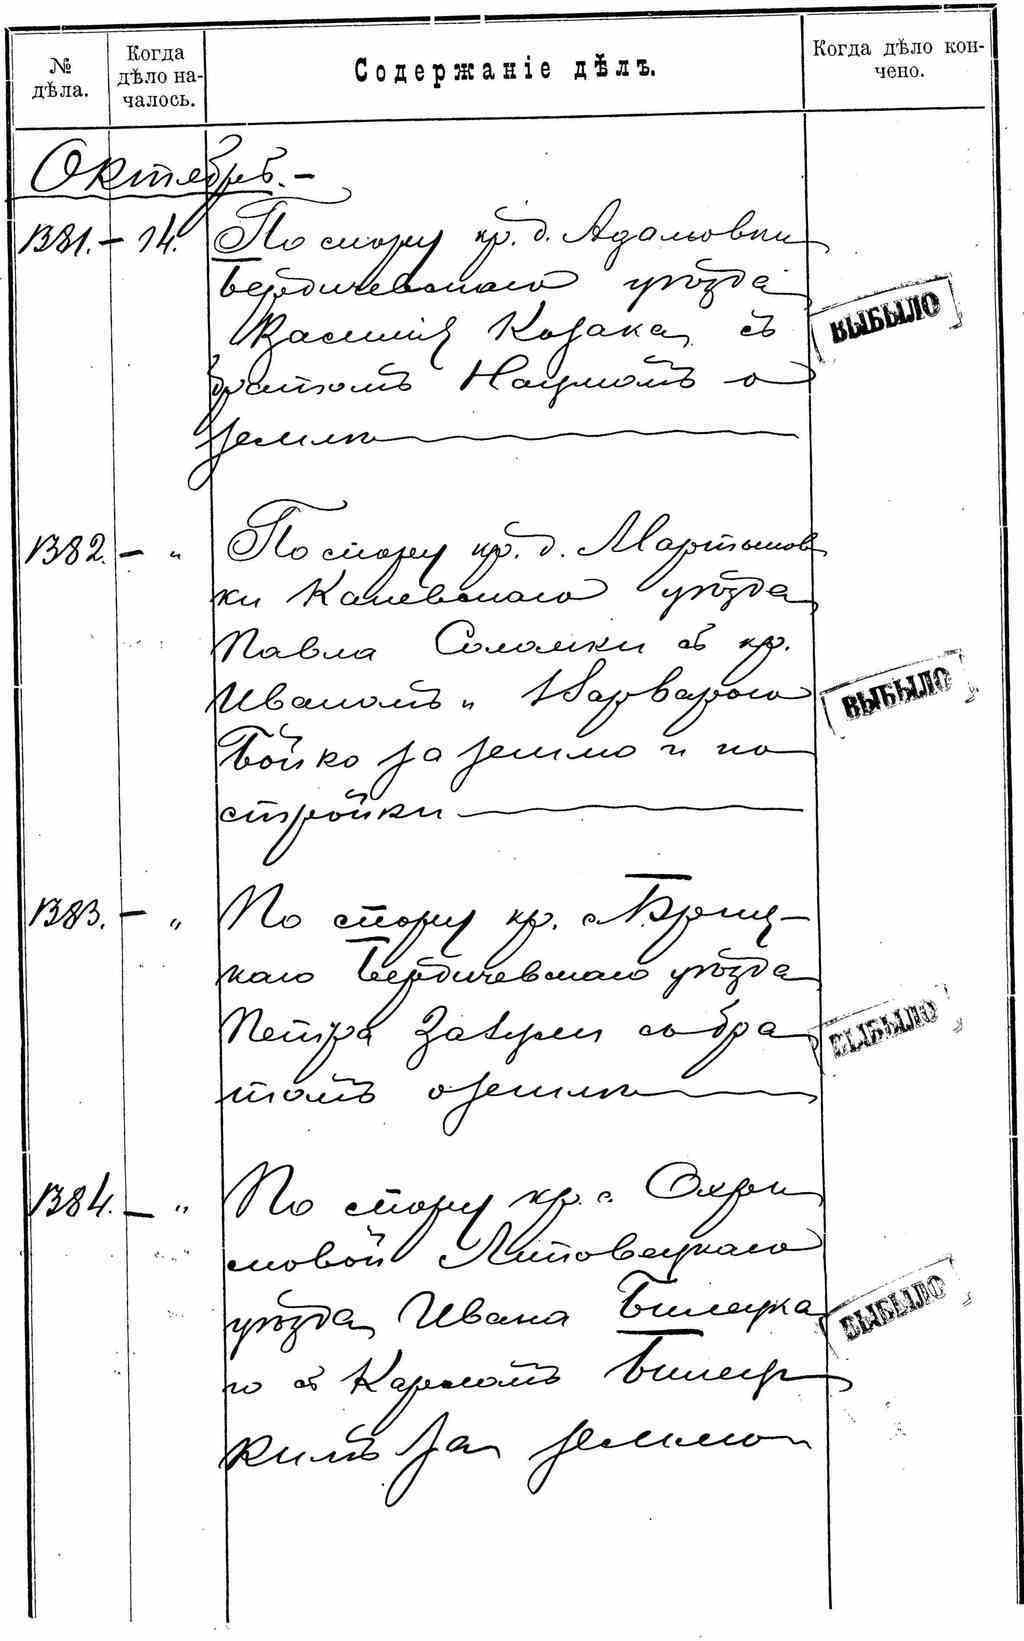 № дѣла.
Когда дѣло началось.
Содержаніе дѣлъ.
Когда дѣло кончено.
Октябрь.-
1381.- 14. По спору кр. д. Адамовки
Бердичевскаго уѣзда
Василія Козака съ
братомъ Наумомъ о
землѣ
ВЫБЫЛО
1382. - " По спору кр. д. Мартынов
ки Каневскаго уѣзда
Павла Соломки съ кр.
Иваномъ и Варварою
Бойко за землю и по
стройки
ВЫБЫЛО
1383. - " По спору кр. с.
каго Бердичевскаго уѣзда
Петра со бра
томъ о землѣ
ВЫБЫЛО
1384. - " По спору кр. с. Охри
мовой Липовецкаго
уѣзда Ивана Билецка
го съ Карпомъ Билец
кимъ за землю
ВЫБЫЛО